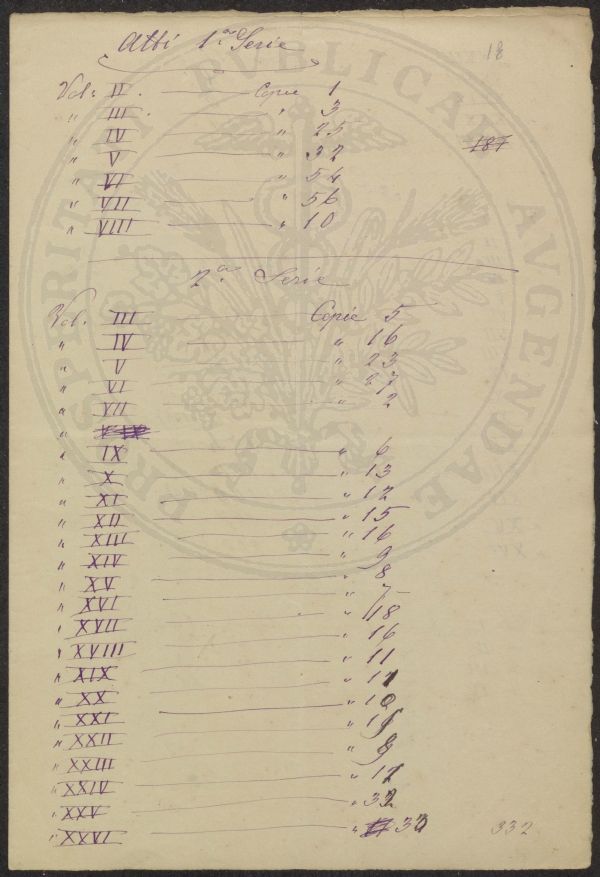 Atti 1.a Serie
18
Vol. II . Copie 1
" III " 3
" IV " 25
187
" V " 32
" VI " 54
" VII " 56
" VIII " 10
2.a Serie
Vol. III Copie 5
" IV " 16
" V " 23
" VI " 27
" VII " 2
"
" IX " 6
" X " 13
" XI " 12
" XII " 15
" XIII " 16
" XIV " 9
" XV " 8
" XVI " 7
" XVII " 18
" XVIII " 16
" XIX " 11
" XX "
" XXI " 10
" XXII "
" XXIII "
" XXIV "
" XXV " 32
" XXVI "
332
PVBLICAE AVGENDAE PROSPERITATI